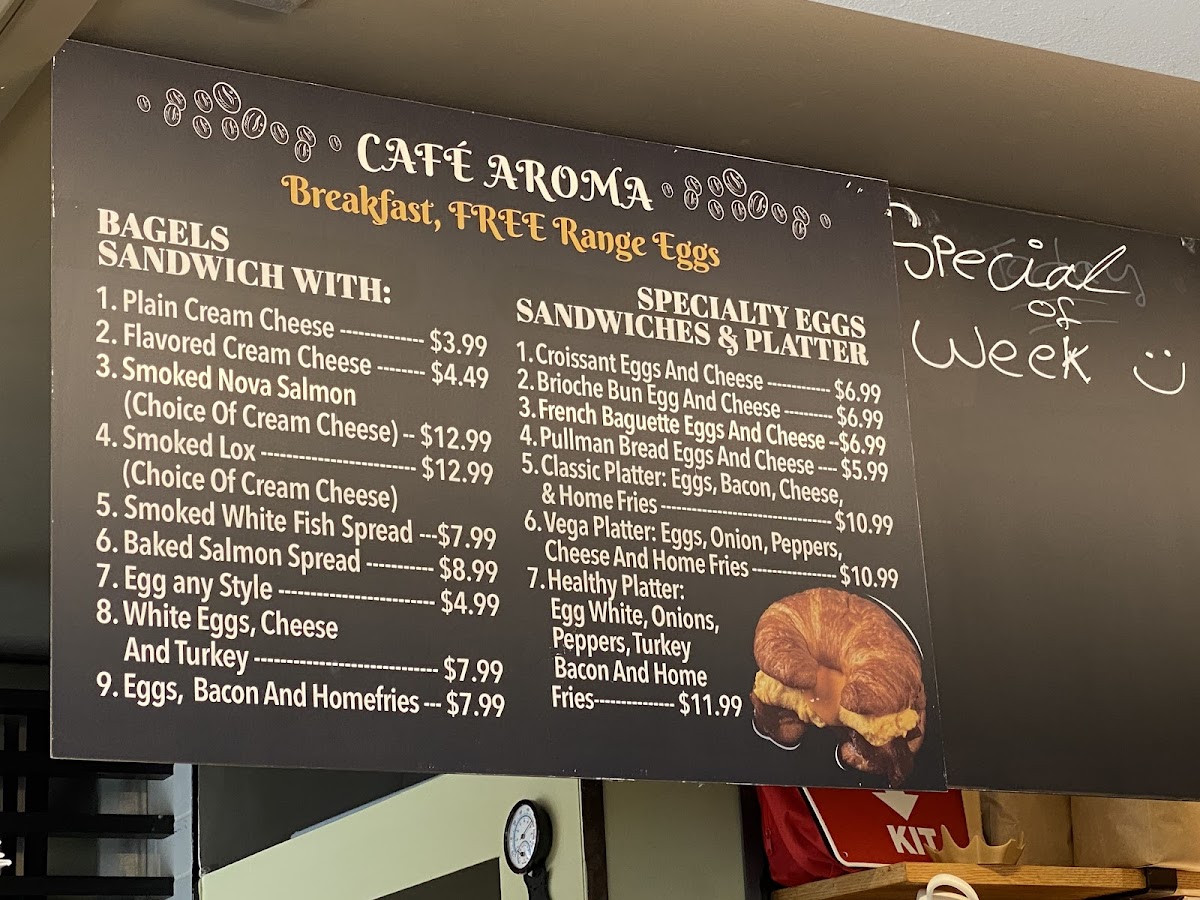 CAFÉ AROMA
Breakfast, FREE Range Eggs
BAGELS
SANDWICH WITH:
1. Plain Cream Cheese ------------- $3.99
2. Flavored Cream Cheese -------- $4.49
3. Smoked Nova Salmon
(Choice Of Cream Cheese) -- $12.99
4. Smoked Lox ------------------------ $12.99
(Choice Of Cream Cheese)
5. Smoked White Fish Spread ---$7.99
6. Baked Salmon Spread ----------- $8.99
7. Egg any Style ------------------------ $4.99
8. White Eggs, Cheese
And Turkey ---------------------------- $7.99
9. Eggs, Bacon And Homefries --- $7.99
SPECIALTY EGGS
SANDWICHES & PLATTER
1. Croissant Eggs And Cheese ------------ $6.99
2. Brioche Bun Egg And Cheese --------- $6.99
3. French Baguette Eggs And Cheese --$6.99
4. Pullman Bread Eggs And Cheese ---- $5.99
5. Classic Platter: Eggs, Bacon, Cheese,
& Home Fries -------------------------------- $10.99
6. Vega Platter: Eggs, Onion, Peppers,
Cheese And Home Fries ---------------- $10.99
7. Healthy Platter:
Egg White, Onions,
Peppers, Turkey
Bacon And Home
Fries--------------- $11.99
Special
Today
of
Week :)
KIT